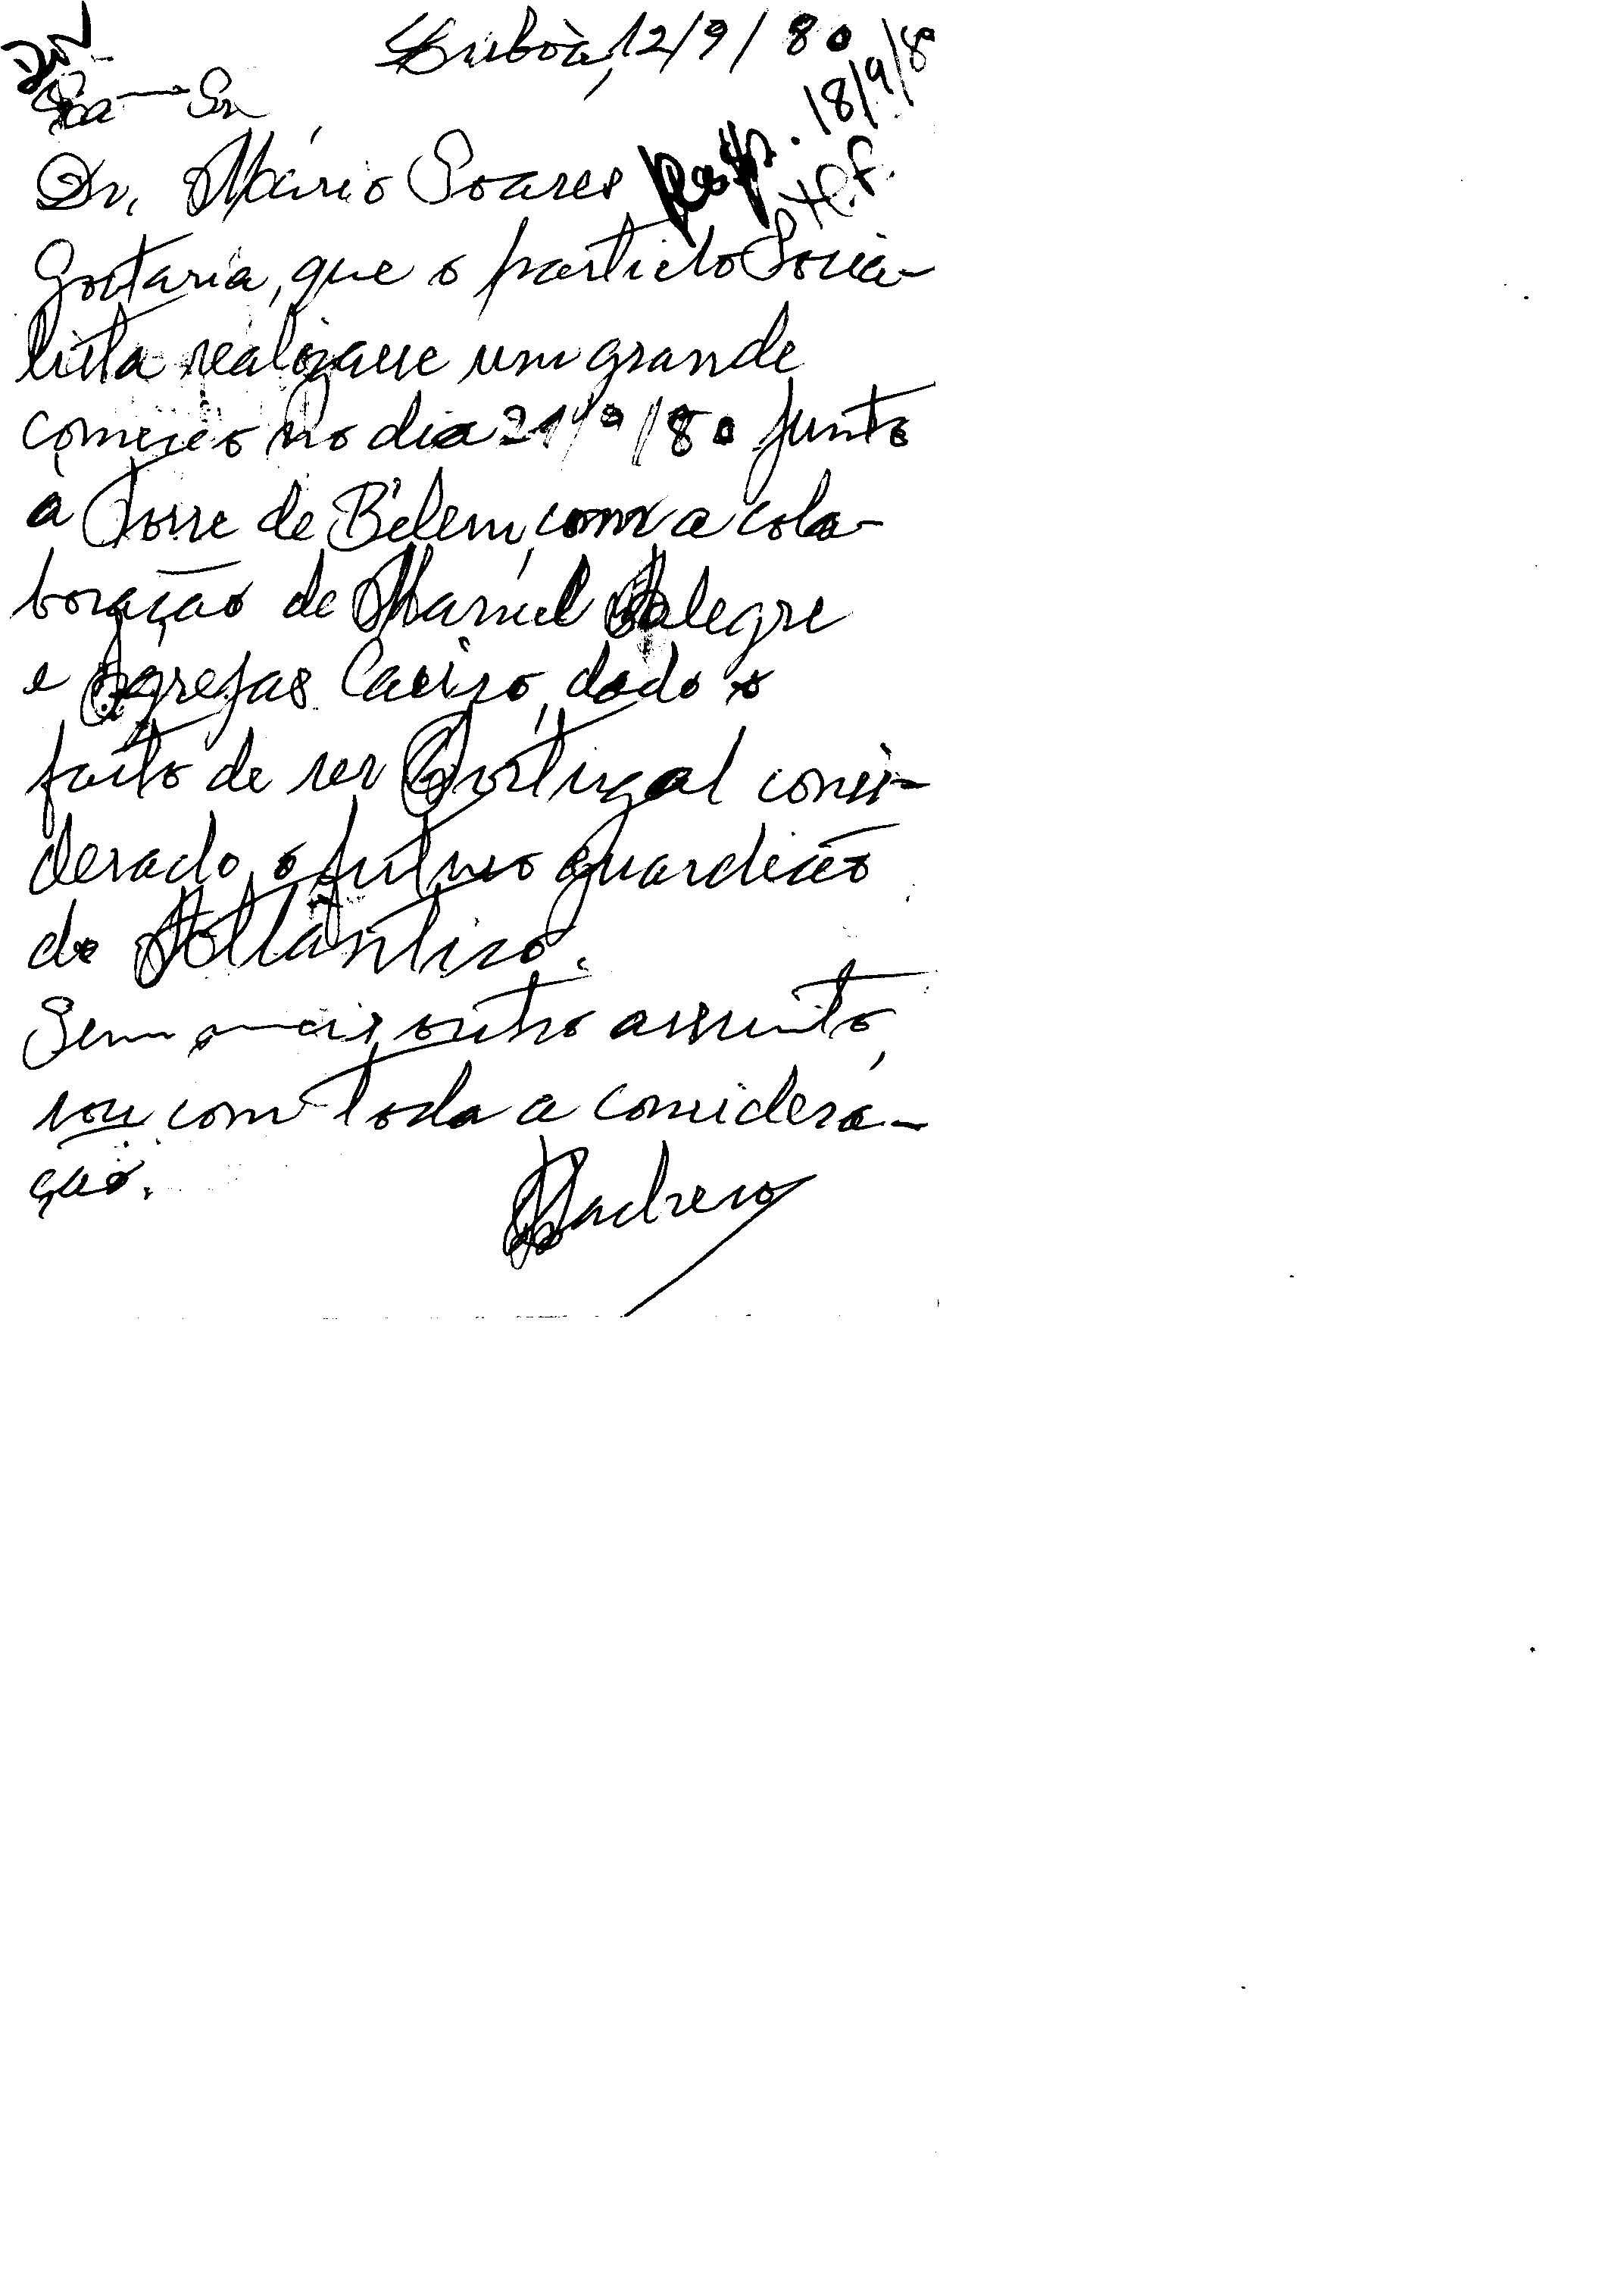 Lisboa, 12/9/80
Sr
Resp. 18/9/80
Dr. Mário Soares
Gostaria, que o partido Socia-
lista realizasse um grande
comicio no dia 21/9/80 junto
à Torre de Bélem, com a cola-
boração de Manuel Alegre
e Igrejas Caeiro, dado o
facto de ser Portugal consi-
derado o futuro guardião
do Atlântico.
Sem mais outro assunto,
sou com toda a considera-
ção.